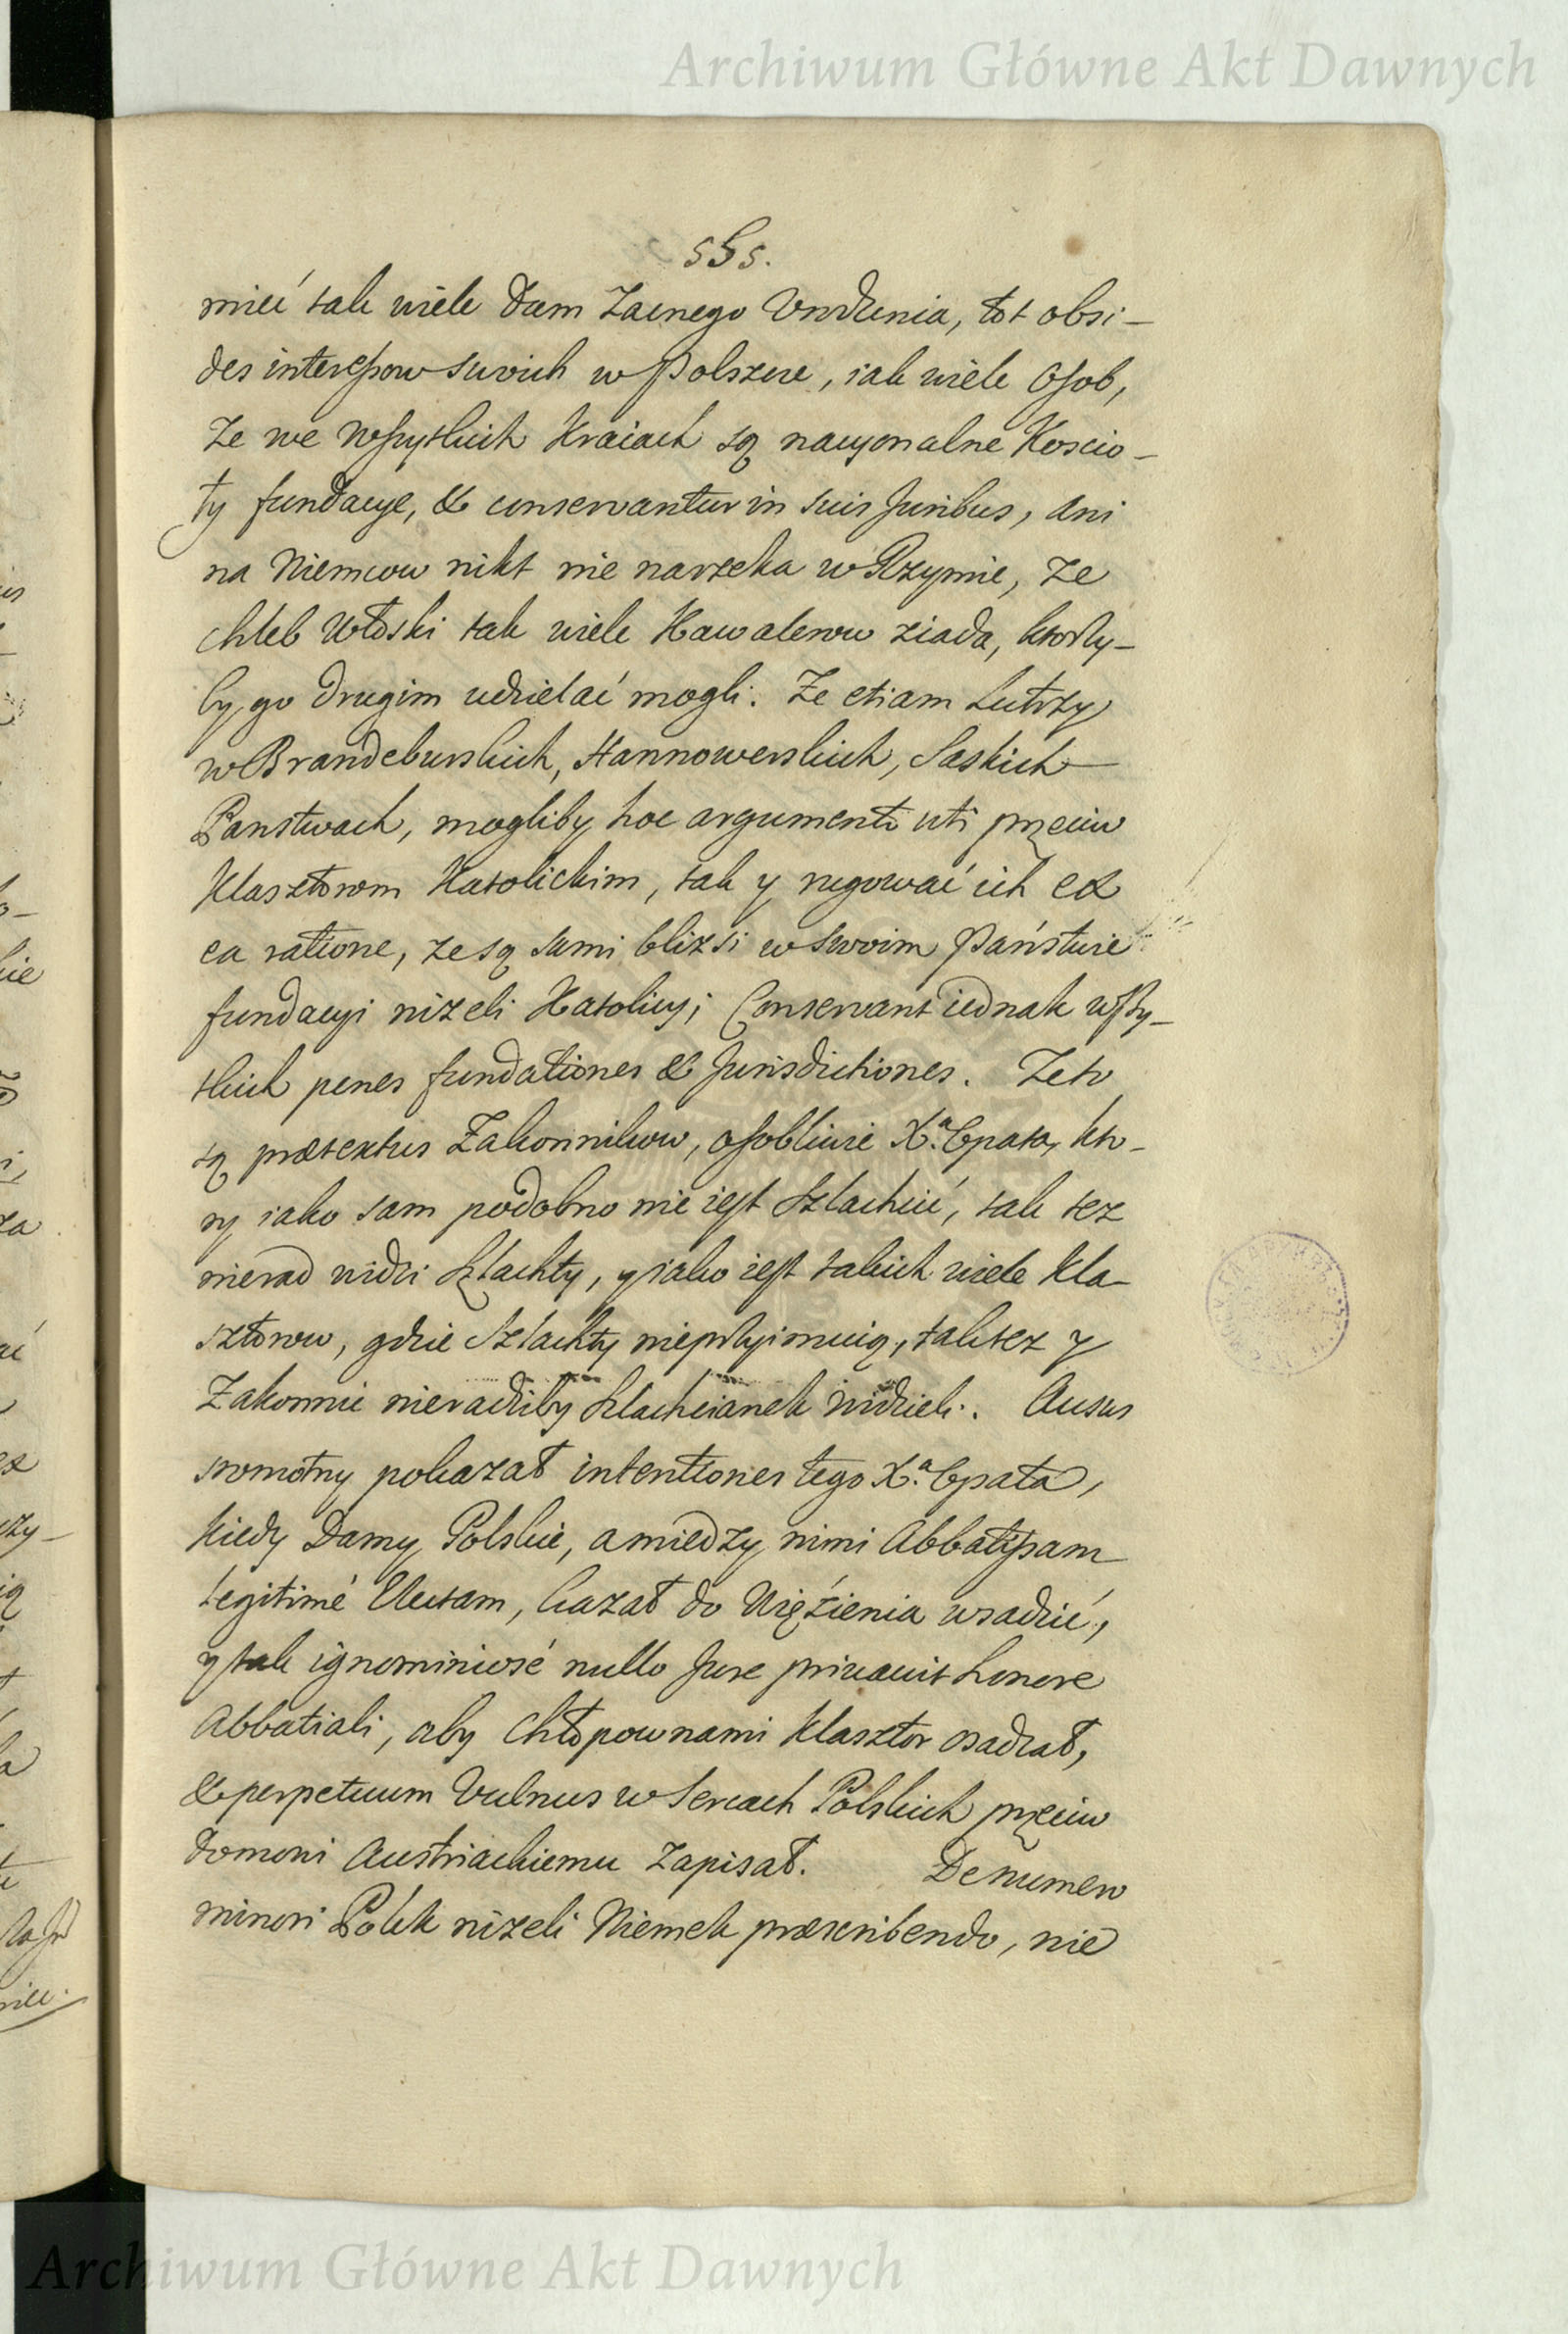 Archiwum Główne Akt Dawnych
555.
mieć tak wiele Dam Zacnego Urodzenia, tot obsi-
des interessow swoich w Polszcze, iak wiele Osob,
Ze we wszytkich Kraiach są nacyonalne Koscio-
ły fundacye, & conservantur in suis Juribus, ani
na Niemcow nikt nie narzeka w Rzymie, Ze
chleb Włoski tak wiele Kawalerow ziada, ktorzy-
by go drugim udzielać mogli. Ze etiam Lutrzy
w Brandeburskich, Hannowerskich, Saskich
Panstwach, mogliby hoc argumento uti przeciw
Klasztorom Katolickim, tak y rugować ich ex
ea ratione, ze są sami blizsi w swoim Państwie
fundacyi nizeli Katolicy; Conservant iednak wszy-
tkich penes fundationes & Jurisdictiones. Ze to
są praetextus Zakonnikow, osobliwie Xa. Opata, kto-
ry iako sam podobno nie iest Szlachcić, tak tez
nierad widzi Szlachty, y iako iest takich wiele Kla-
sztorow, gdzie Szlachty nieprzyimuią, tak tez y
Zakonnie nieradziby Szlachcianek widzieli. Ausus
sromotny pokazał intentiones tego Xa. Opata,
kiedy Damy Polskie, a miedzy nimi Abbatissam
legitimé Electam, kazał do Więźienia wsadzić,
y tak ignominiosé nullo Jure privavit honore
Abbatiali, aby Chłopownami Klasztor osadzał,
& perpetuum Vulnus w Sercach Polskich przeciw
Domowi Austriackiemu Zapisał. De numero
minori Polek nizeli Niemek praescribendo, nie
Archiwum Główne Akt Dawnych